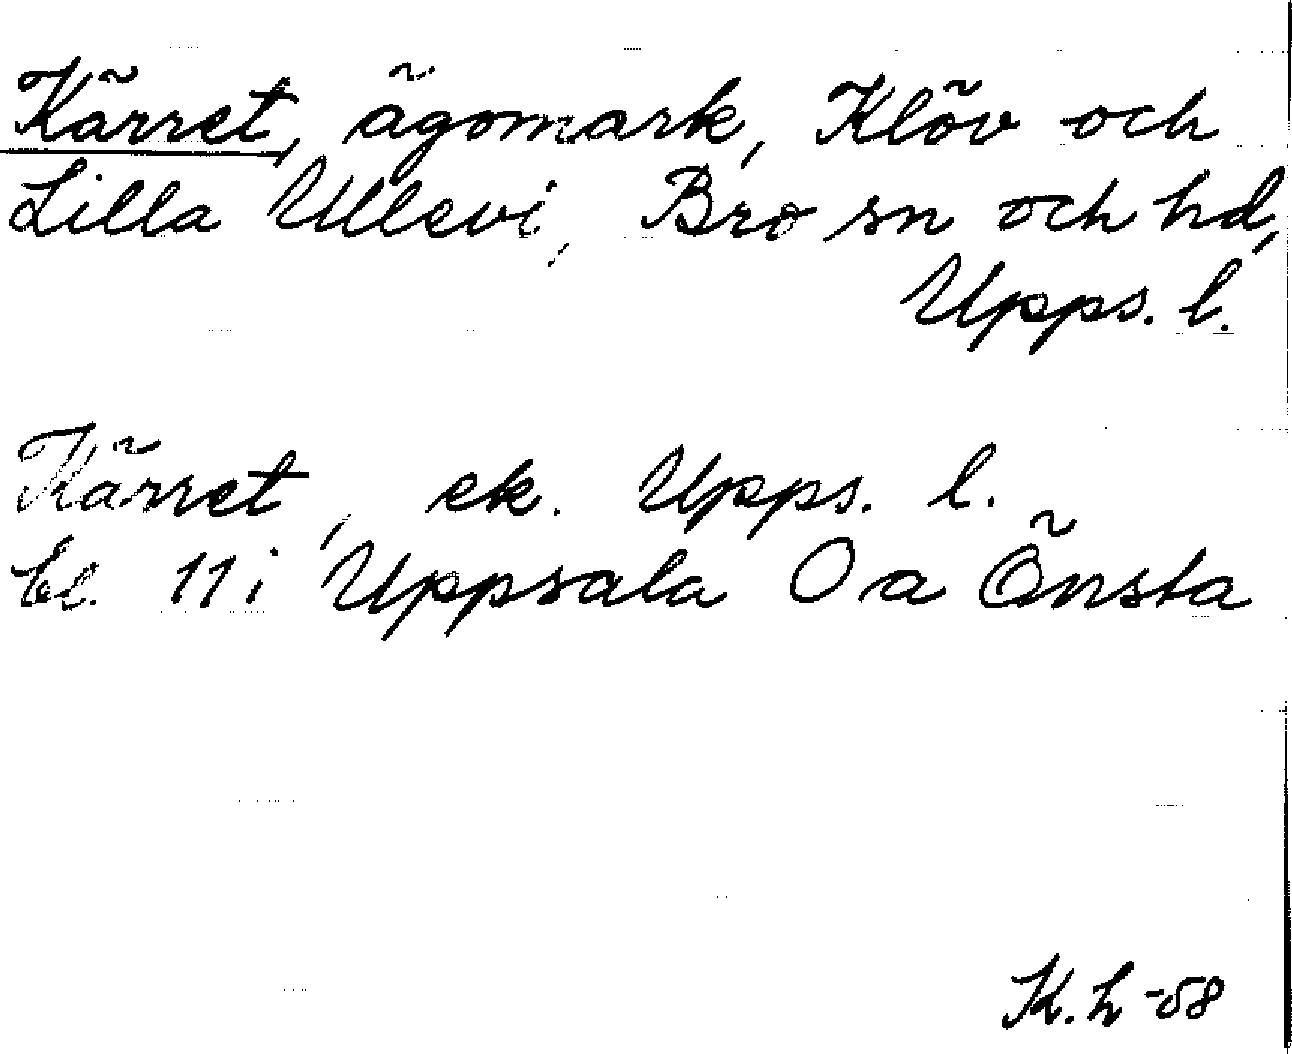 Kärret, ägomark, Klöv och
Lilla Ullevi, Bro sn och hd,
Upps. l.
Kärret, ek. Upps. l.
bl. 11 i Uppsala O a Önsta
K.h -58